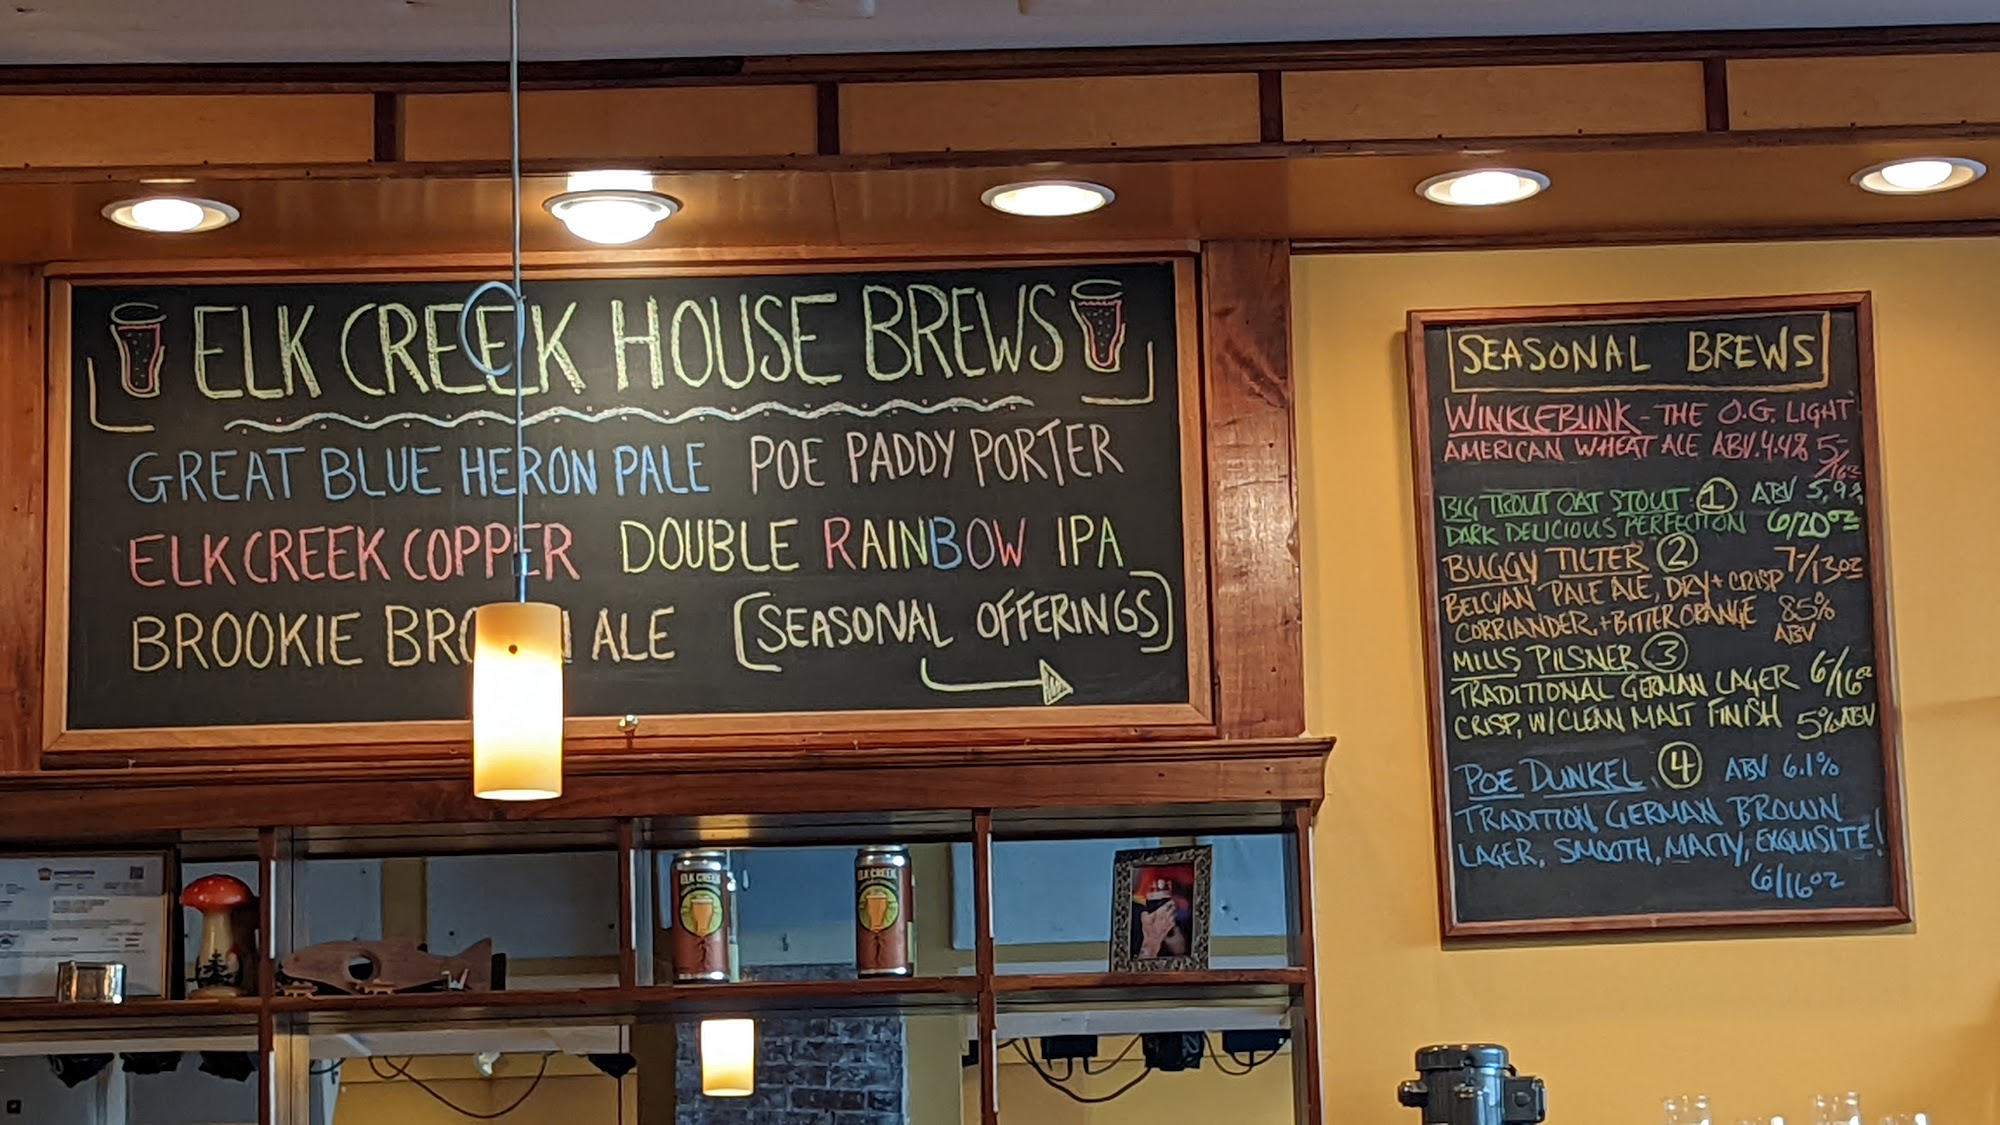 ELK CREEK HOUSE BREWS
GREAT BLUE HERON PALE
POE PADDY PORTER
ELK CREEK COPPER
DOUBLE RAINBOW IPA
BROOKIE BROWN ALE
(SEASONAL OFFERINGS)
SEASONAL BREWS
WINKLEBLINK - THE O.G. LIGHT
AMERICAN WHEAT ALE ABV. 4.4% 5-/16oz
BIG TROUT OAT STOUT 1 ABV 5.9%
DARK DELICIOUS PERFECTION 6/20oz
BUGGY TILTER 2 7-/13oz
BELGIAN PALE ALE, DRY + CRISP
CORRIANDER, + BITTER ORANGE 8.5% ABV
MILLS PILSNER 3
TRADITIONAL GERMAN LAGER 6-/16oz
CRISP, W/CLEAN MALT FINISH 5% ABV
POE DUNKEL 4 ABV 6.1%
TRADITION GERMAN BROWN
LAGER, SMOOTH, MALTY, EXQUISITE!
6/16oz
ELK CREEK
ELK CREEK